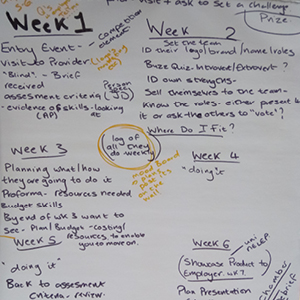 visit + ask to set a challenge
Prize
Week 1
Entry Event -
Competition element
Visit to Provider
"Blind" - Brief
received
assessment criteria
Person
- evidence of skills - looking
at (AP)
Week 2
Set the team
ID their logo/brand/name/roles
Buzz Quiz - Introvert/Extrovert?
ID own strengths -
Sell themselves to the team -
Know the rules - either present it
or ask the others to "vote"?
Where Do I Fit?
log of
all they
do weekly
Mood Board
Week 3
Planning what/how
they are going to do it
Proforma - resources needed
Budget skills
By end of wk 3 want to
see - Plan/Budget - costing/
resources, to enable
you to move on.
Week 4
"doing it"
Week 5
"doing it"
Back to assessment
criteria - review.
Week 6
uni
Showcase Product to
Employer wk 7.
Plan Presentation
chamber
brief